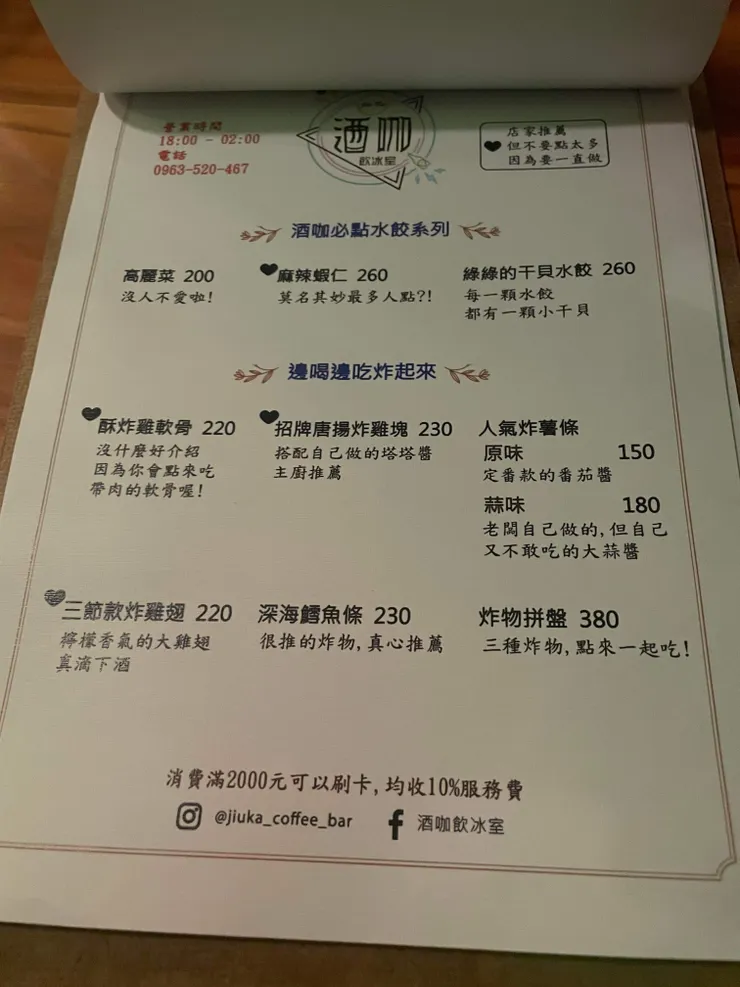 營業時間
18:00 - 02:00
電話
0963-520-467
酒咖
飲冰室
店家推薦
但不要點太多
因為要一直做
酒咖必點水餃系列
高麗菜 200
沒人不愛啦!
麻辣蝦仁 260
莫名其妙最多人點?!
綠綠的干貝水餃 260
每一顆水餃
都有一顆小干貝
邊喝邊吃炸起來
酥炸雞軟骨 220
沒什麼好介紹
因為你會點來吃
帶肉的軟骨喔!
招牌唐揚炸雞塊 230
搭配自己做的塔塔醬
主廚推薦
人氣炸薯條
原味 150
定番款的番茄醬
蒜味 180
老闆自己做的,但自己
又不敢吃的大蒜醬
三節款炸雞翅 220
檸檬香氣的大雞翅
真滴下酒
深海鱈魚條 230
很推的炸物,真心推薦
炸物拼盤 380
三種炸物,點來一起吃!
消費滿2000元可以刷卡,均收10%服務費
@jiuka_coffee_bar
酒咖飲冰室